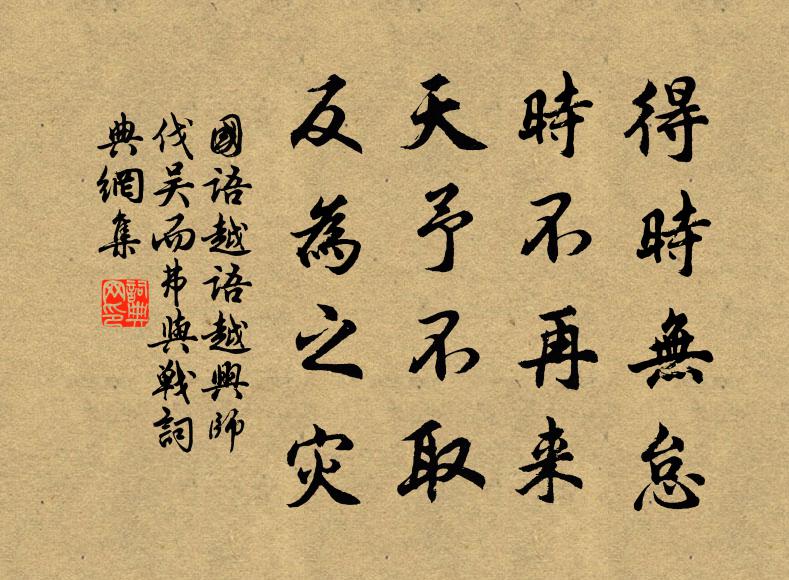 得時無怠
時不再来
天予不取
反為之災
國語越語越興師
伐吴而弗與戰詞
典網集
詞典网印